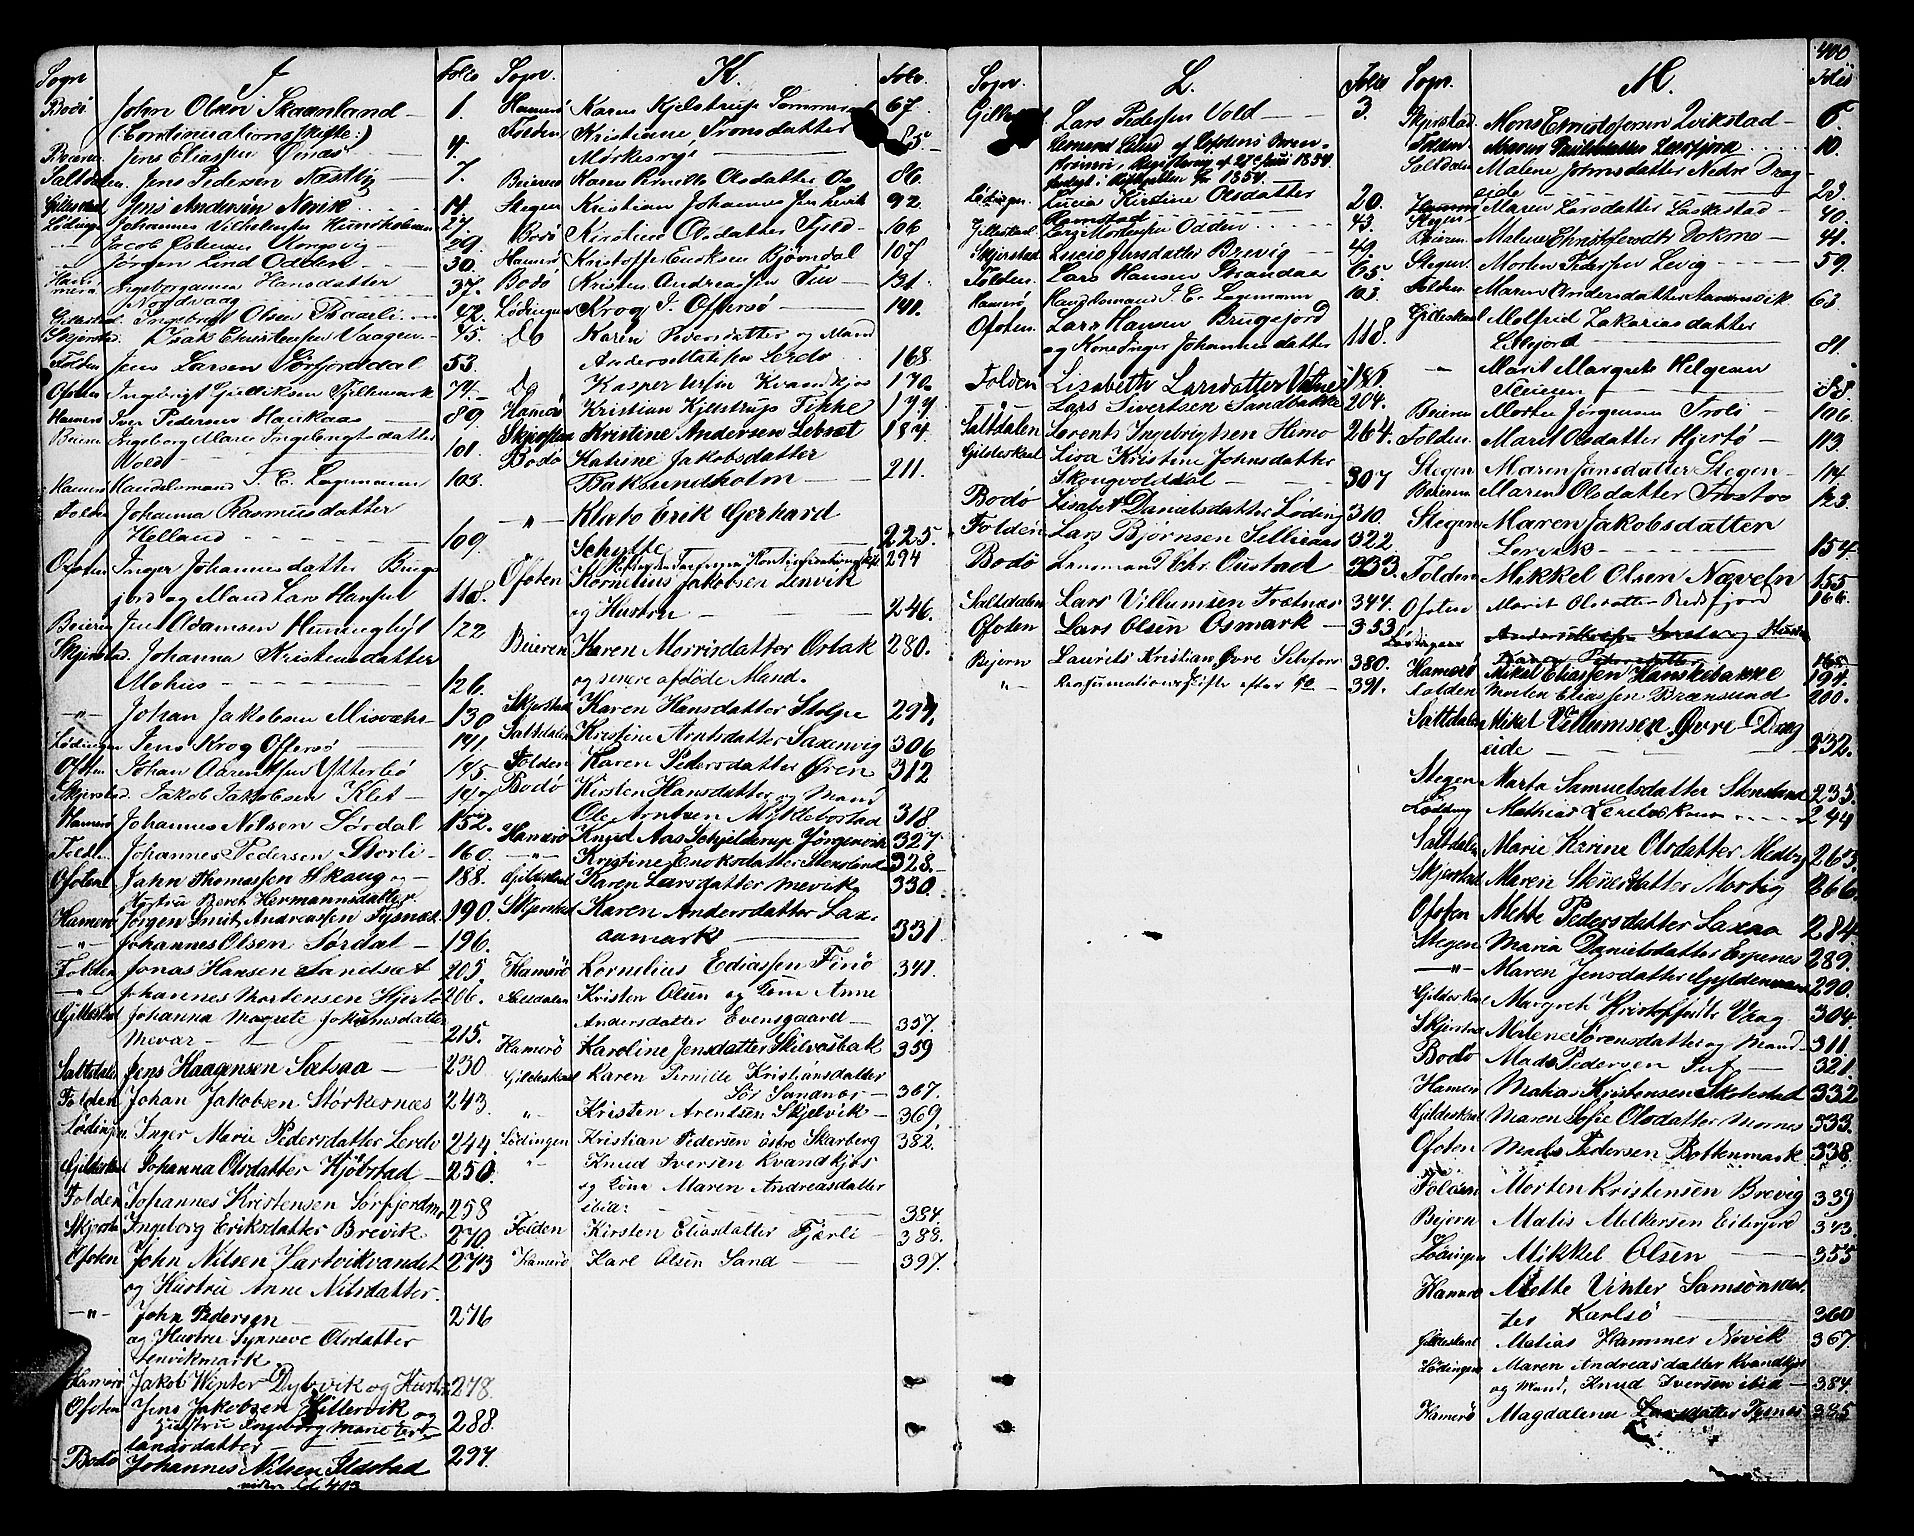 400
Sogn J. Folio
Bodö John Olsen Skaanland 1.
(Continuationsskifte:)
Beieren Jens Eliassen Osnæs 4.
Saltdalen Jens Pedersen Nestby 7.
Gildeskaal Jens Andersen Nevik 14.
Lödingen Johannes Vilhelmsen Hundholmen 27.
Jacob Estensen Kongsvig 29
Jörgen Lind Odden 30.
Hammerø Ingeborganna Hansdatter
Nordvaag 37.
Gildeskaal Ingebrigt Olsen Paarli 42
Skjerstad Isak Christensen Vaagen 45.
Folden Jens Larsen Sörfjorddal 53.
Ofoten Ingebrigt Gulliksen Fjellemark 74.
Hamerö Iver Pedersen Haukaas 89.
Beieren Ingeborg Marie Ingebrigtsdatter
Vold 101.
Hamerö Handelsmand J. E. Lagemann 103.
Folden Johanna Rasmusdatter
Helland 109.
Ofoten Inger Johannesdatter Bruge
jord og Mand Lars Hansen 118.
Beieren Jens Adamsen Hunnighyt 122
Skjerstad Johanna Kristensdatter
Mohus 126.
" Johan Jakobsen Misvæhr 130
Lödingen Jens Krog Offersö 141.
Ofoten Johan Aarentsen Ytterbö 145.
Skjerstad Jakob Jakobsen Klet 147
Hamerö Johannes Nilsen Sördal 152.
Folden Johannes Pedersen Storli 160.
Ofoten John Thomassen Skaug og 188.
Hustru Beret Hermannsdatter
Hamerö Jörgen Smit Andreassen Tysnæs 190.
" Johannes Olsen Sördal 196.
Folden Jonas Hansen Sandsæt 205.
" Johannes Mortensen Hjertö 206.
Gildeskaal Johanna Magrete Jokumsdatter
Mevær 215.
Saltdalen Jens Haagensen Sætsaa 230
Folden Johan Jakobsen Störkersnæs 243.
Lödingen Inger Marie Pedersdatter Lerdö 244.
Gildeskaal Johanna Olsdatter Kjöbstad 250.
Folden Johannes Kristensen Sörfjordmo 258
Skjerstad Ingeborg Eriksdatter Brevik 270.
Ofoten John Nilsen Lartvikvandet 273
og Hustru Anne Nilsdatter.
" John Pedersen 276
og Hustru Synneve Olsdatter
Lenvikmark
Hamerö Jakob Winter Dybvik og Hustr 278.
Ofoten Jens Jakobsen Hillervik og 288.
Hustru Ingeborg Marie Erl-
landsdatter
Bodö Johannes Nilsen Ildstad 294.
Sogn. K. Folio.
Hamerö Karen Kjelstrup Sommer 67.
Folden Kristiane Tronsdatter 85
Mörkesvig
Beieren Karen Pernille Olsdatter Os 86.
Stegen Kristian Johannes Jentevik 92.
Bodö Kirstine Olsdatter Fjeld 106
Hamerö Kristoffer Enoksen Bjömdal 107
Bodö Kristen Andreassen Fin 131.
Lödingen Krog J. Offersö 141.
Do Karen Pedersdatter og Mand
Anders Matissen Lerdö 168.
Do Kasper Ursin Kvandkjos 170.
Hamerö Kristian Kjelstrup Fikke 177.
Skjerstad Kristine Andersen Lebsæt 184.
Bodö Katrine Jakobsdatter
Baksundholm 211.
" Klato Erik Gerhard
Schytte 225.
294
Ofoten Kornelius Jakobsen Lenvik
og Hustru 246.
Beieren Karen Morrisdatter Ostak 280.
og senere afdöde Mand.
Skjerstad Karen Hansdatter Stolpe 297.
Saltdalen Kristine Arntsdatter Saxenvig 306
Folden Karen Pedersdatter Øren 312
Bodö Kirsten Hansdatter og Mand
Ole Arntsen Myklebostad 318
Hamerö Knud Aas Schjelderup Jörgensen 327.
" Kristine Enoksdatter Stensland 328.
Gildeskaal Karen Larsdatter Mevik 330.
Skjerstad Karen Andersdatter Lax-
aamark 331
Hamerö Kornelius Ediassen Finö 341.
Saltdalen Kristen Olsen og Kone Anne
Andersdatter Evensgaard 357.
Hamerö Karoline Jensdatter Skilvasbak 359
Gildeskaal Karen Pernille Kristiansdatter
Sör Sandnær 367.
" Kristen Arentsen Skjelvik 369,
Lödingen Kristian Pedersen östre Skarberg 382.
" Knud Iversen Kvandkjos
og Kone Maren Andreasdatter
ibid: 384.
Folden Kirsten Eliasdatter Fjærli 388.
Hamerö Karl Olsen Sand 397.
Sogn. L. Folio
Gildeskaal Lars Pedersen Vold 3.
Lödingen Lucia Kirstine Olsdatter
Ramstad 20.
Gildeskaal Lars Mortensen Odden 43.
Skjerstad Lucie Jensdatter Brevig 49.
Folden Lars Hansen Strandaa 65
Hamerö Handelsmand J. E. Lagemann 103
Ofoten Lars Hansen Brugejord
og Kone Inger Johannesdatter 118.
Folden Lisabeth Larsdatter Vatne 181
Lars Sivertsen Sandbakke 204.
Saltdalen Lorents Ingebrigtsen Himo 264.
Gildeskaal Lisa Kristine Johnsdatter
Skougvolddal 307
Bodö Lisabet Danielsdatter Löding 310.
Folden Lars Björnsen Sellienas 322
Bodö Lensmand Chr. Oustad 333.
Saltdalen Lars Villumsen Trætnes 344.
Ofoten Lars Olsen Osmark 353.
Bejern Laurits Kristian Övre Selsfors 380.
" Resumationsskifte efter Do 391.
Sogn. M. Folio
Skjerstad Mons Christofersen Kvikstad 6.
Folden Maren Paulsdatter Leirfjord 10.
Saltdalen Malene Johnsdatter Nedre Drag-
eide 23.
Stegen Maren Larsdatter Laskestad 40.
Beieren Malene Christofersdt Tokmo 41.
Stegen Morten Pedersen Levig 59.
Folden Maren Andersdatter 63
Gildeskaal Molfrid Zakariasdatter
Lekfjord 81.
" Marit Margrete Helgesen
88.
Beieren Morten Jörgensen Troli 106
Folden Marit Olsdatter Hjertö 113.
Stegen Maren Jensdatter Stegen 114
Beieren Maren Olsdatter Trostvo 123.
Stegen Maren Jakobsdatter
Lervik 154
Folden Mikkel Olsen Nævelsn 155
Ofoten Marit Olsdatter Beisfjord 166.
Lödingen
165
Hamerö Mikal Eliassen Hanskebakke 194.
Folden Morten Eliassen Brænsund 200.
Saltdalen Mikel Villumsen Övre Drag
eide 232.
Stegen Marta Samuelsdatter Stensland 233.
Lödingen Mathias 244
Saltdalen Marie Karine Olsdatter Medby 263.
Skjerstad Maren Stenersdatter Mortig 266.
Ofoten Mette Pedersdatter Laxaa 284.
Stegen Maria Danielsdatter Espenes 289.
" Maren Jensdatter Gyldenvand 290.
Gildeskaal Margrete Kristofferdtr Vaag 304.
Skjerstad Malene Sörensdatter og Mand 311.
Bodö Mads Pedersen Luf 321.
Hamerö Matias Kristensen Skotestad 332
Gildeskaal Maren Sofie Olsdatter Mornes 333.
Ofoten Mads Pedersen Bottenmark 338.
Folden Morten Kristensen Brevig 339
Bejern Matis Melkersen Eiterjord 343.
Lödingen Mikkel Olsen 355
Hamerö Mette Vinter Samsonsdat-
ter Karlsö 360
Gildeskaal Matias Hammer Növik 367.
Lödingen Maren Andreasdatter Kvandkjos
og Mand, Knud Iversen ibid 384.
Hamerö Magdalena Larsdatter Tysnes 385